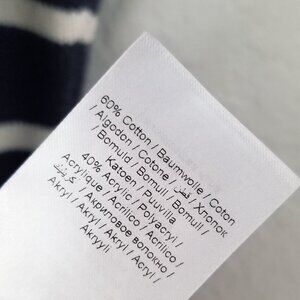 60% Cotton / Baumwolle / Coton
/ Algodon / Cotone / قطن / Хлопок
/ Bomuld / Bomull / Bomull /
Katoen / Puuvilla
40% Acrylic / Polyacryl /
Acrylique / Acrilico / Acrilico
/ Акриловое волокно /
Akryl / Akryl / Akryl / Acryl /
Akryyli